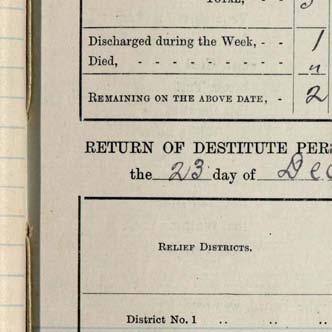 TOTAL,
Discharged during the Week, - - 1
Died, - - - - - - - - - "
REMAINING ON THE ABOVE DATE, - 2
RETURN OF DESTITUTE PER
the 23 day of Dec
RELIEF DISTRICTS.
District No. 1 .. .. ..